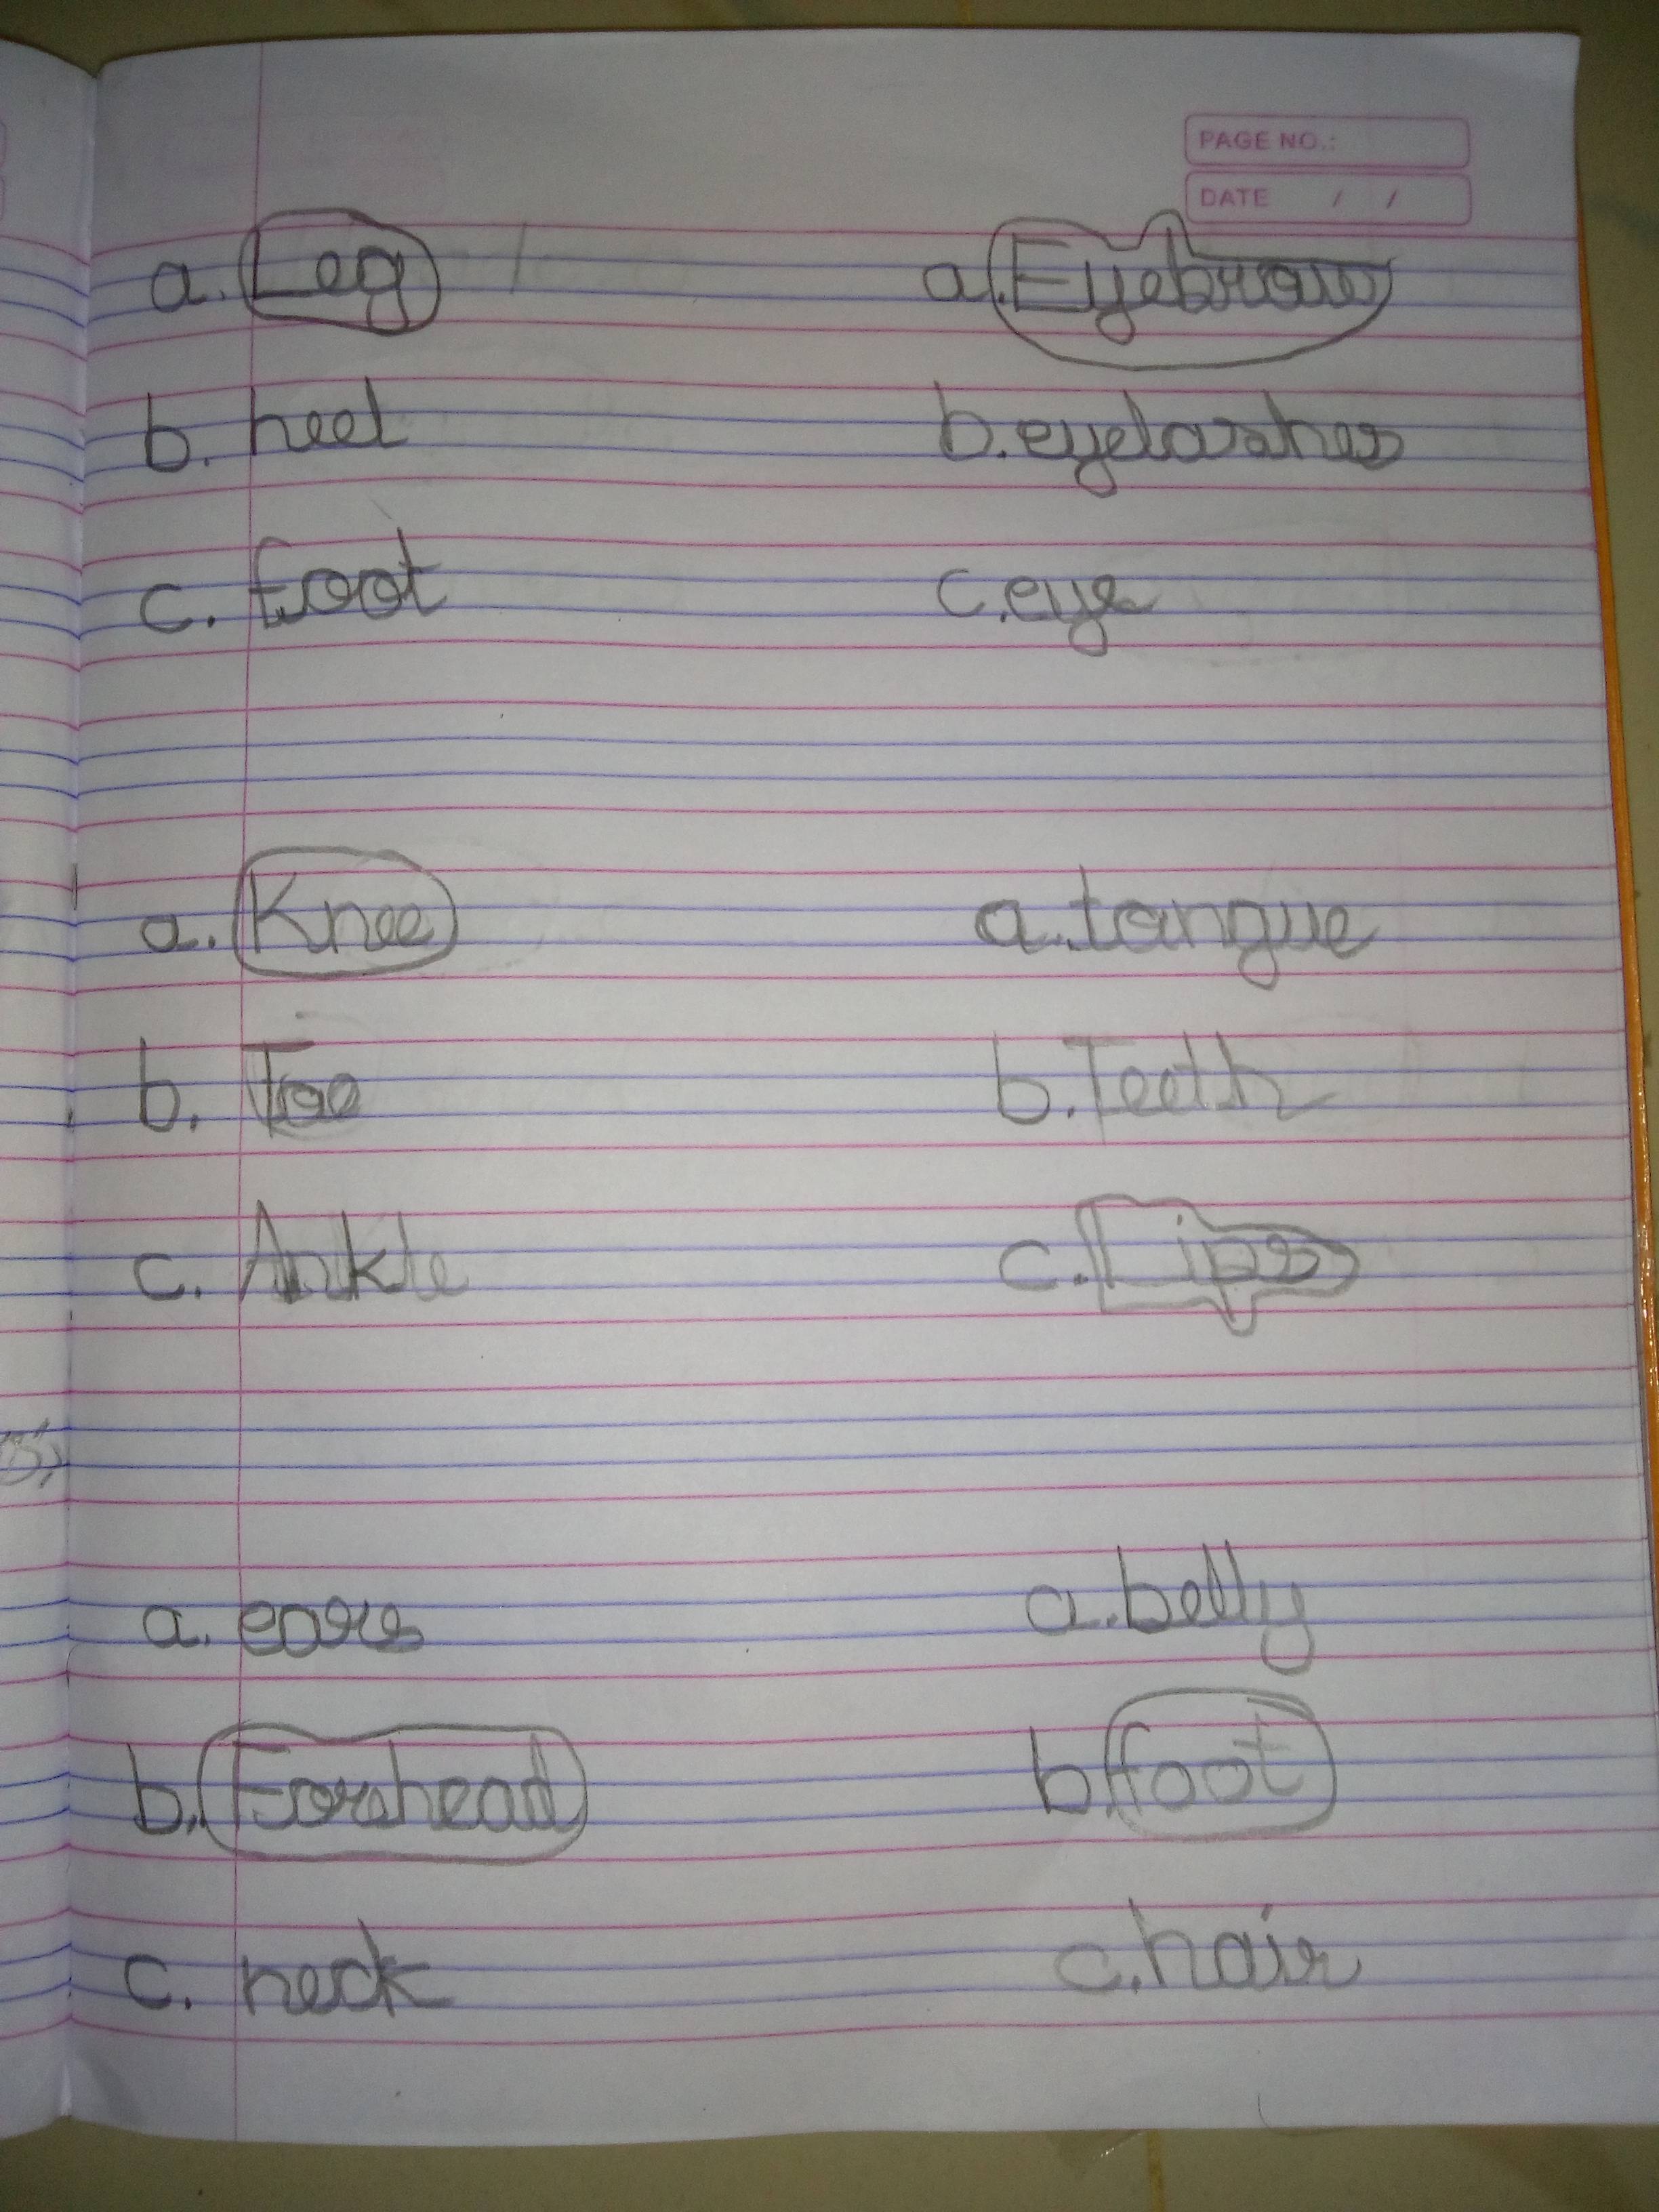 PAGE NO.:
DATE / /
a. Leg
b. heel
c. foot
a. Eyebrow
b. eyelashes
c. eye
a. Knee
b. Toe
c. Ankle
a. tongue
b. Teeth
c. Lips
a. ears
b. Forehead
c. neck
a. belly
b. foot
c. hair